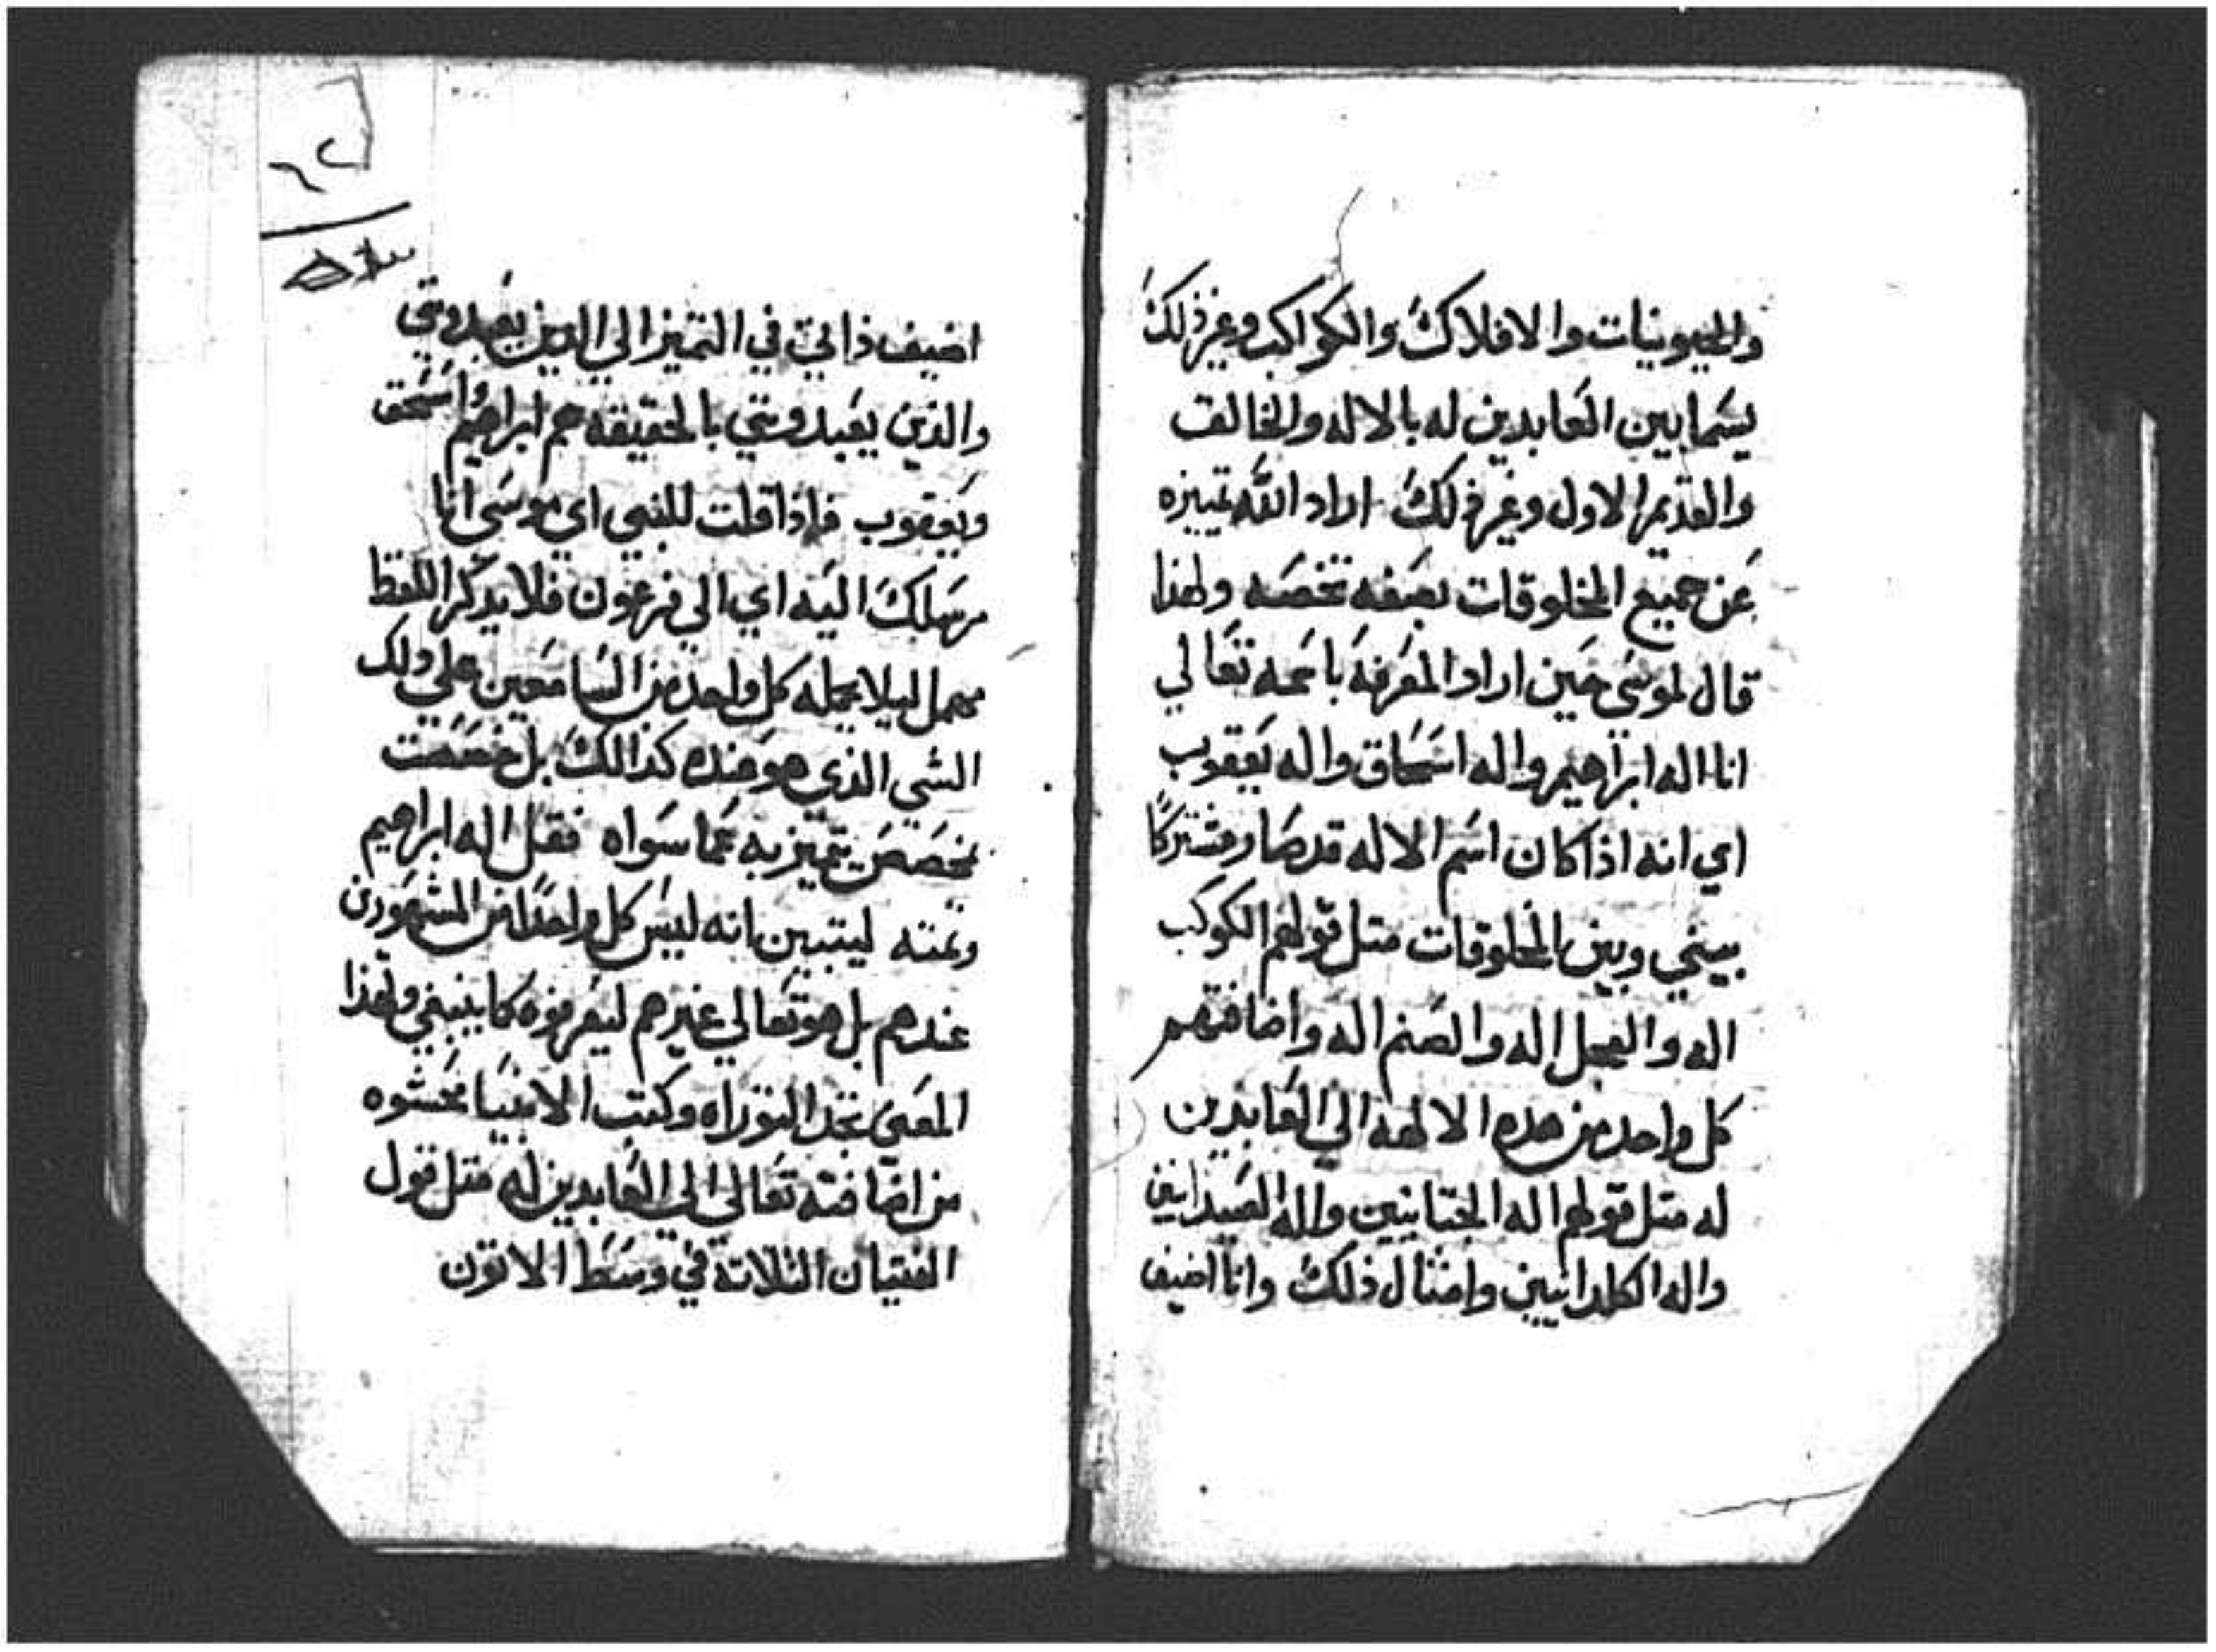 والحيونيات والافلاك والكواكب وغير ذلك
يسما بين العابدين له بالاله والخالق
والقديم الاول وغير ذلك اراد الله تمييزه
عن جميع المخلوقات بصفه تخصه ولهذا
قال لموسي حين اراد المعرفة باسمه تعالي
انا اله ابراهيم واله اسحاق واله يعقوب
اي انه اذا كان اسم الاله قد صار مشتركًا
بيني وبين المخلوقات متل قولهم الكوكب
اله والعجل اله والصنم اله واضافتهم
كل واحد من هده الالهة الي العابدين
له متل قولهم اله الجتانيين واله الصيدانيين
واله الكلدانيين وامثال ذلك وانا اضيف
اضيف ذاتي في التميز الي الدين يعبدونني
والذين يعبدونني بالحقيقه هم ابراهيم واسحق
ويعقوب فاذا قلت للنبي اي موسي انا
مرسلك اليه اي الي فرعون فلا يدكر اللفظ
مهمل ليلا يحمله كل واحد من السامعين علي دلك
الشي الذي هو عنده كذالك بل خصصت
تخصص يتميز به عما سواه فقل اله ابراهيم
وتمته ليتبين انه ليس كل واحدًا من المشهورين
عندهم بل هو تعالي غيرهم ليعرفوه كما ينبغي ولهذا
المعني تجد التوراه وكتب الانبيا محشوه
من اضافته تعالي الي العابدين له متل قول
الفتيان الثلاتة في وسط الاتون